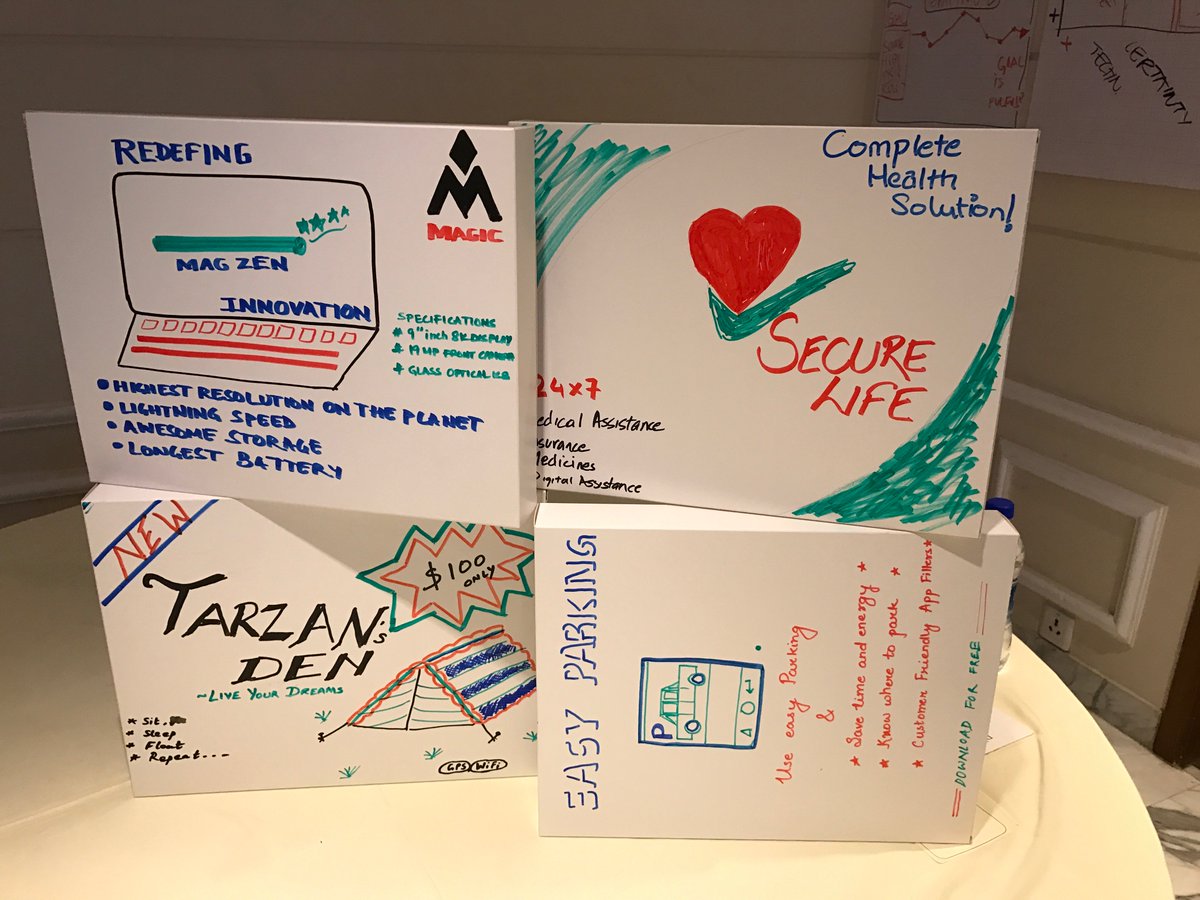 REDEFING
MAGIC
MAG ZEN
INNOVATION
SPECIFICATIONS
* 9" inch 8K DISPLAY
* 19 MP FRONT CAMERA
* GLASS OPTICAL
• HIGHEST RESOLUTION ON THE PLANET
• LIGHTNING SPEED
• AWESOME STORAGE
• LONGEST BATTERY
Complete
Health
Solution!
SECURE
LIFE
24x7
edical Assistance
nsurance
Medicines
Digital Assistance
NEW
TARZAN's
DEN
~LIVE YOUR DREAMS
$100
ONLY
* Sit.
* Sleep
* Float
* Repeat...
GPS WiFi
EASY PARKING
P
Use easy Parking
&
* Save time and energy *
* Know where to park *
* Customer Friendly App Filters *
DOWNLOAD FOR FREE
GOAL
IS
CERTAINTY